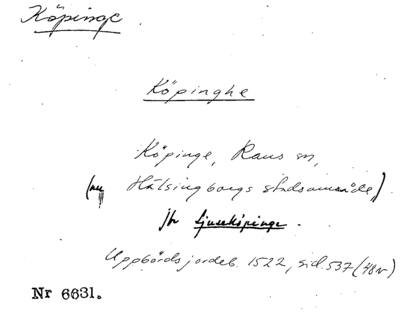 Köpinge
Köpinghe
Köpinge, Raus sn,
(nu Hälsingborgs stadsområde,)
jfr Ljuseköpinge.
Uppbördsjordeb. 1522, sid. 537 (48v)
Nr 6631.